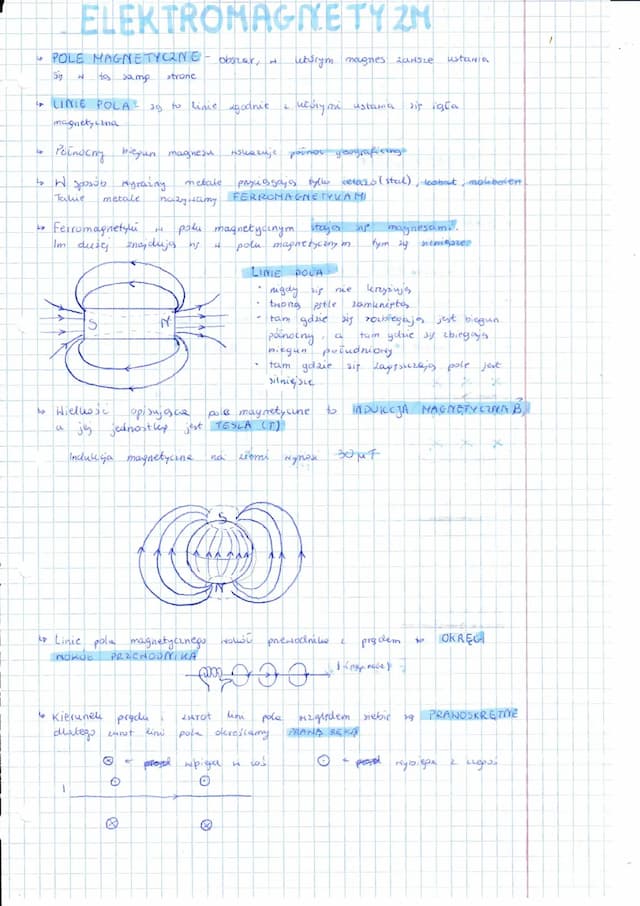 ELEKTROMAGNETYZM
↳ POLE MAGNETYCZNE - obszar, w którym magnes zawsze ustawia
się w tą samą stronę
↳ LINIE POLA są to linie zgodnie z którymi ustawia się igła
magnetyczna
↳ Północny biegun magnesu wskazuje północ geograficzną
↳ W sposób wyraźny metale przyciągają tylko żelazo (stal), kobalt,
Takie metale nazywamy FERROMAGNETYKAMI
↳ Ferromagnetyki w polu magnetycznym stają się magnesami.
Im dużej znajdują się w polu magnetycznym tym są
LINIE POLA
• nigdy się nie krzyżują
• tworzą pętle zamknięte
• tam gdzie się rozbiegają jest biegun
północny, a tam gdzie się zbiegają
biegun południowy
• tam gdzie się zagęszczają pole jest
silniejsze
S N
↳ Wielkość opisująca pole magnetyczne to INDUKCJA MAGNETYCZNA B,
a jej jednostką jest TESLA (T)
Indukcja magnetyczna na ziemi wynosi 30 μT
S
N
↳ Linie pola magnetycznego wokół przewodnika z prądem to OKRĘGI
WOKÓŁ PRZEWODNIKA
↳ Kierunek prądu i zwrot linii pola względem siebie są PRAWOSKRĘTNE
dlatego zwrot linii pola określamy PRAWĄ RĘKĄ
⊗ - prąd wpływa w coś ⊙ - prąd wypływa z czegoś
I